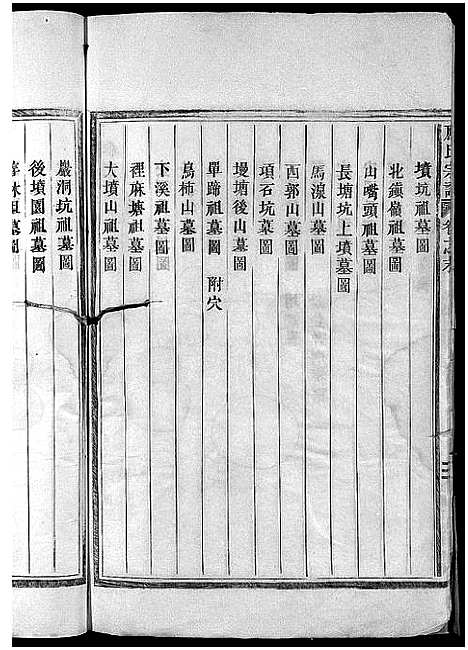 氏宗譜
墳坑祖墓圖
北鐵嶺祖墓圖
山嘴頭祖墓圖
長塘坑上墳墓圖
馬湶山墓圖
西郭山墓圖
項石坑墓圖
墁塘後山墓圖
單蹄祖墓圖 附穴
烏柿山墓圖
下溪祖墓圖
裡麻塘祖墓圖
大墳山祖墓圖
巖洞坑祖墓圖
後墳園祖墓圖